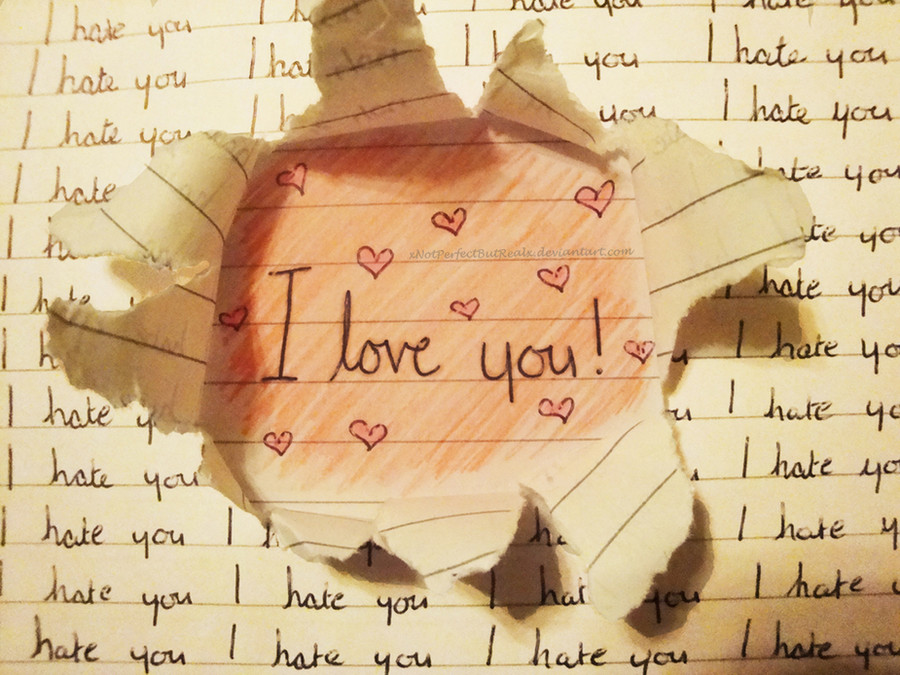 I hate you hate you I hate you
I hate you I hat I you I hate you
I hate you I you I hate you
I hate ate you
I h te you
xNotPerfectButRealx.deviantart.com
I hate hate you
I love you!
I h u I hate you
I hate y u I hate yo
I hate you I hate you
I hate you I h ha I hate y
I hate you I hate you I hat you I hate
hate you I hate you I hate you I hate you